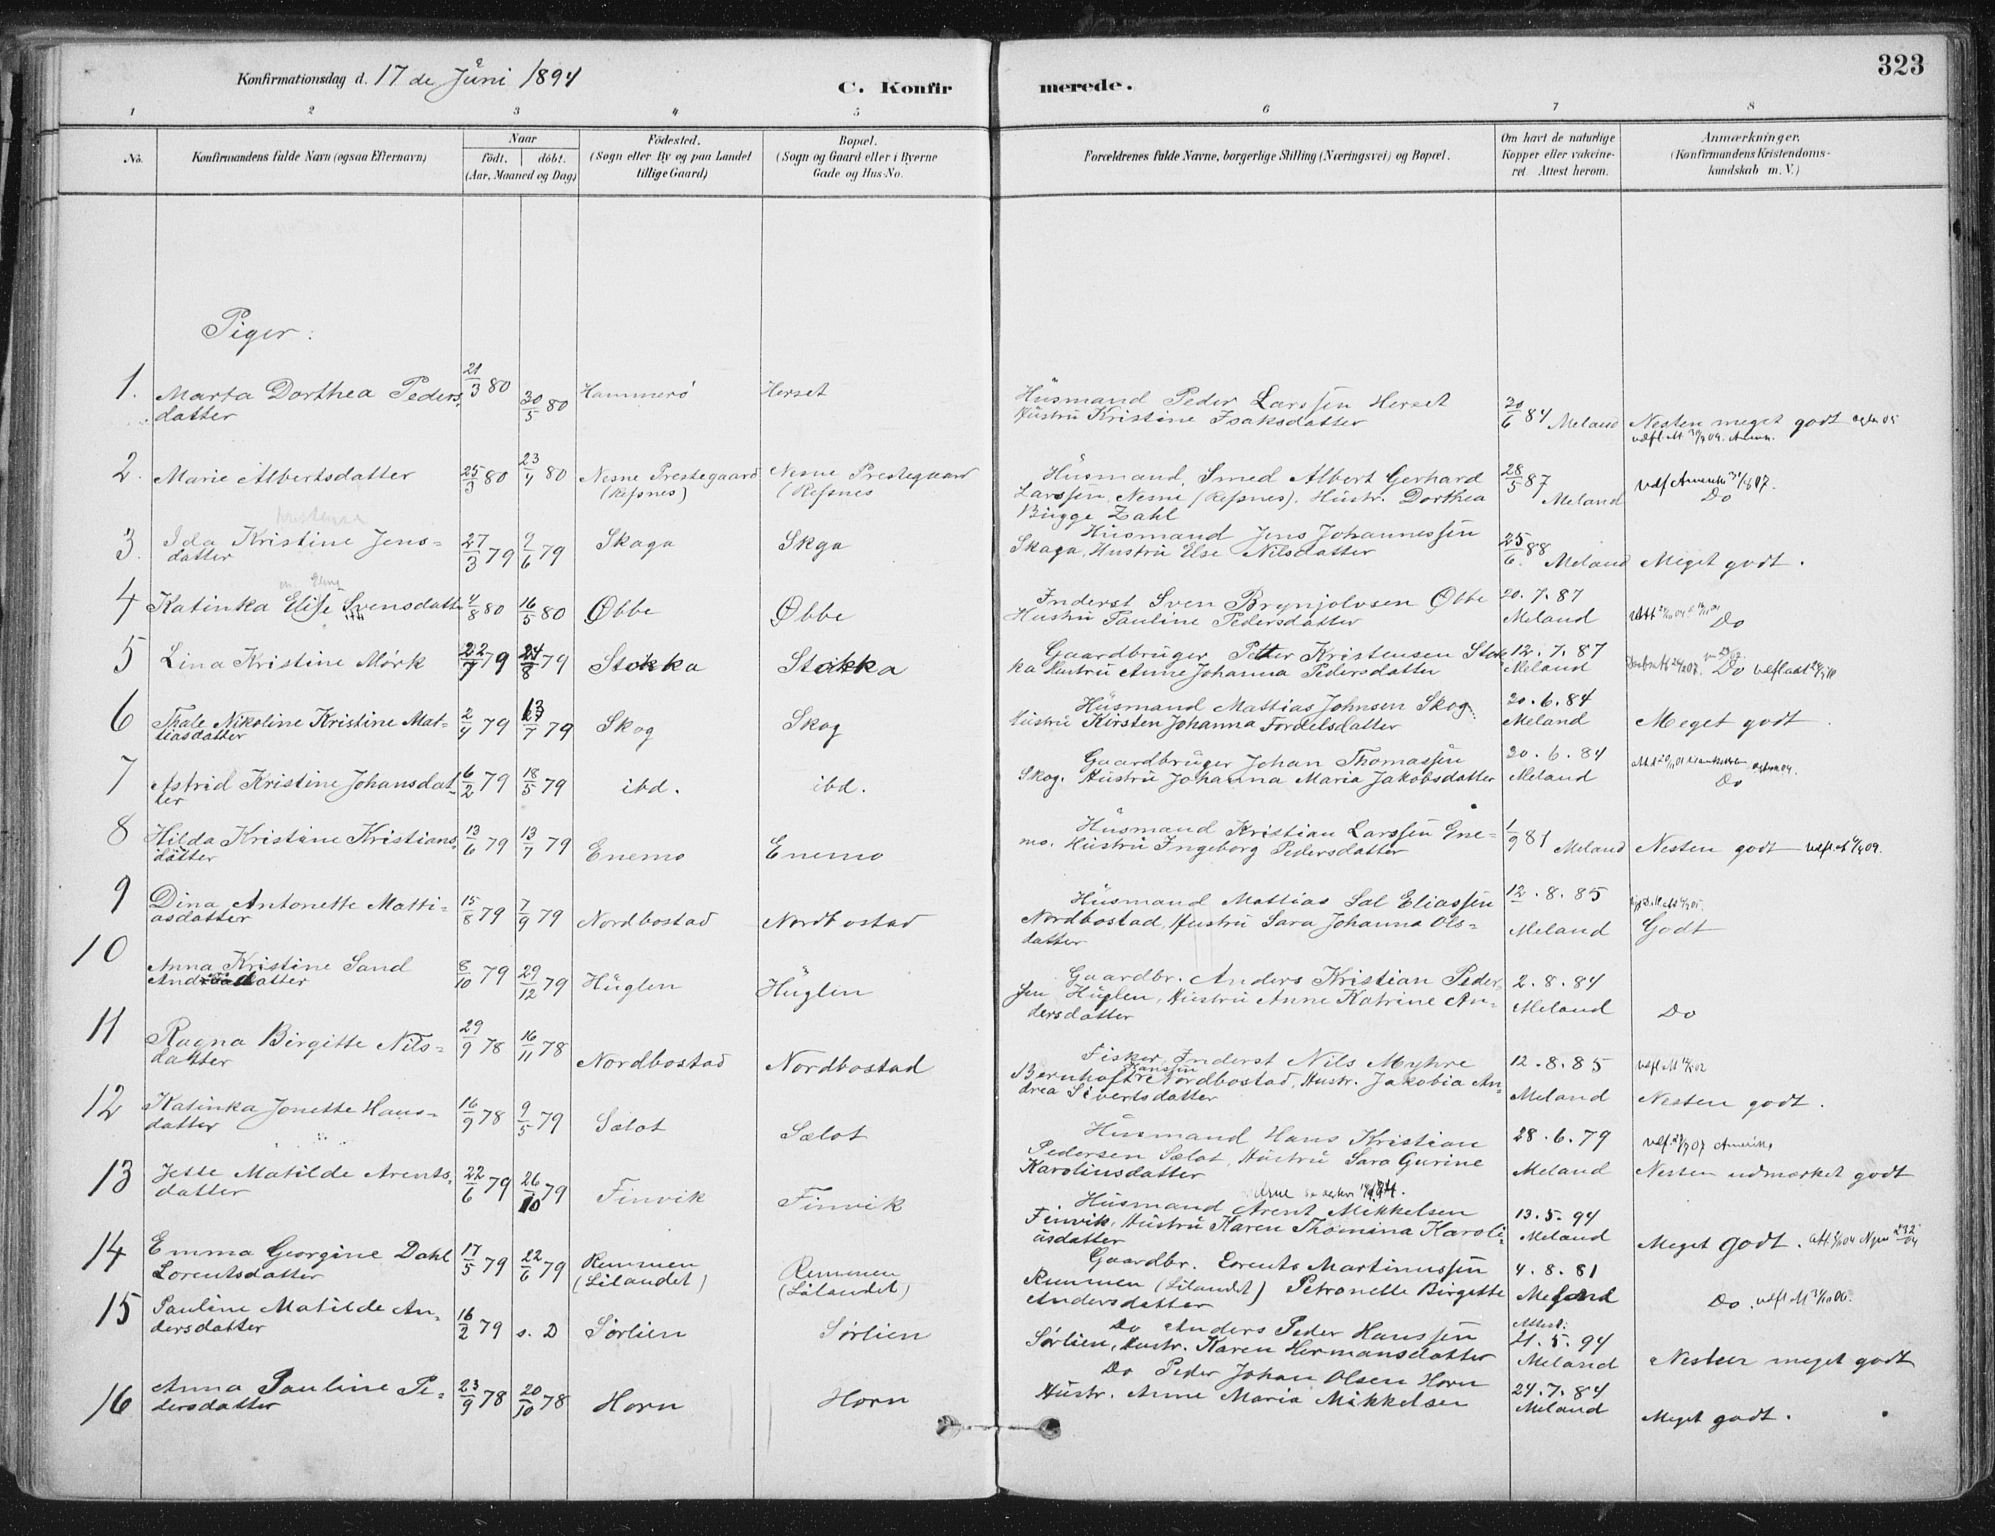 323
Konfirmationsdag d. 17 de Juni 1894
C. Konfirmerede.
1 2 3 4 5 6 7 8
No.
Konfirmandens fulde Navn (ogsaa Efternavn)
Naar
födt. döbt.
(Aar, Maaned og Dag)
Födested.
(Sogn eller By og paa Landet
tillige Gaard)
Bopæl.
(Sogn og Gaard eller i Byerne
Gade og Hus-No.
Forældrenes fulde Navne, borgerlige Stilling (Næringsvei) og Bopæl.
Om havt de naturlige
Kopper eller vakcine-
ret Attest herom.
Anmærkninger.
(Konfirmandens Kristendoms-
kundskab m. V.)
Piger:
1. Marta Dorthea Peders- 21/3 80 30/5 80 Hammerö Herset Husmand Peder Larssen Herset 20/6 84 Meland Nesten meget godt
datter Hustru Kristine Isaksdatter
2. Marie Albertsdatter 25/3 80 23/4 80 Nesne Prestegaard Nesne Prestegaard Husmand, Smed Albert Gerhard 28/5 87 Meland Do
(Refsnes) (Refsnes Larssen, Nesne (Refsnes). Hustr. Dorthea
Bugge Zahl
3. Ida Kristine Jens- 27/3 79 2/6 79 Skaga Skga Husmand Jens Johannessen 25/6 88 Meland Meget godt.
datter Skaga, Hustru Else Nilsdatter
4 Katinka Elise Svensdatter 4/8 80 16/5 80 Øbbe Øbbe Inderst Sven Brynjolvsen Øbbe 20.7.87 Meland Do
Hustru Pauline Pedersdatter
5 Lina Kristine Mörk 22/7 79 24/8 79 Stokka Stokka Gaardbruger Petter Kristensen Stok- 12.7.87 Meland Do
ka Hustru Anne Johanna Pedersdatter
6 Thale Nikoline Kristine Mat- 2/4 79 13/7 79 Skog Skog Husmand Mattias Johnsen Skog 20.6.84 Meland Meget godt.
tiasdatter Hustru Kirsten Johanna Fordelsdatter
7 Astrid Kristine Johansdat- 6/2 79 18/5 79 ibd. ibd. Gaardbruger Johan Thomassen 20.6.84 Meland Do
ter Skog. Hustru Johanna Maria Jakobsdatter
8 Hilda Kristine Kristians- 13/6 79 13/7 79 Enemo Enemo Husmand Kristian Larssen Ene- 1/9 81 Meland Nesten godt
datter mo. Hustru Ingeborg Pedersdatter
9 Dina Antonette Matti- 15/8 79 7/9 79 Nordbostad Nordbostad Husmand Mattias Sal Eliassen 12.8.85 Meland Godt
asdatter Nordbostad, Hustru Sara Johanna Ols-
datter
10 Anna Kristine Sand 8/10 79 29/12 79 Huglen Huglen Gaardbr. Anders Kristian Peder- 2.8.84 Meland Do
datter sen Huglen, Hustru Anne Katrine An-
dersdatter
11 Ragna Birgitte Nils- 29/9 78 16/11 78 Nordbostad Nordbostad Fisker, Inderst Nils Myhre 12.8.85 Meland Nesten godt.
datter Bernhoft Hanssen Nordbostad, Hustr. Jakobia An-
drea Sivertsdatter
12 Katinka Jonette Hans- 16/9 78 9/5 79 Sælot Sælot Husmand Hans Kristian 28.6.79 Meland Nesten udmærket godt
datter Pedersen Sælot, Hustru Sara Gurine
Karolinsdatter
13 Jette Matilde Arents- 22/6 79 26/10 79 Finvik Finvik Husmand Arent Mikkelsen 13.5.94 Meland Meget godt.
datter Finvik, Hustru Karen Thomina Karoli-
usdatter
14 Emma Georgine Dahl 17/5 79 22/6 79 Remmen Remmen Gaardbr. Lorents Martinussen 4.8.81 Meland Do
Lorentsdatter (Lilandet) (Lilandet) Remmen (Lilandet) Petronelle Birgitte
Andersdatter
15 Pauline Matilde An- 16/2 79 s. D Sörlien Sörlien Do Anders Peder Hanssen Attest: 21.5.94 Meland Nesten meget godt
dersdatter Sörlien, Hustr. Karen Hermansdatter
16 Anna Pauline Pe- 23/9 78 20/10 78 Horn Horn Do Peder Johan Olsen Horn 24.7.84 Meland Meget godt.
dersdatter Hustr. Anne Maria Mikkelsen